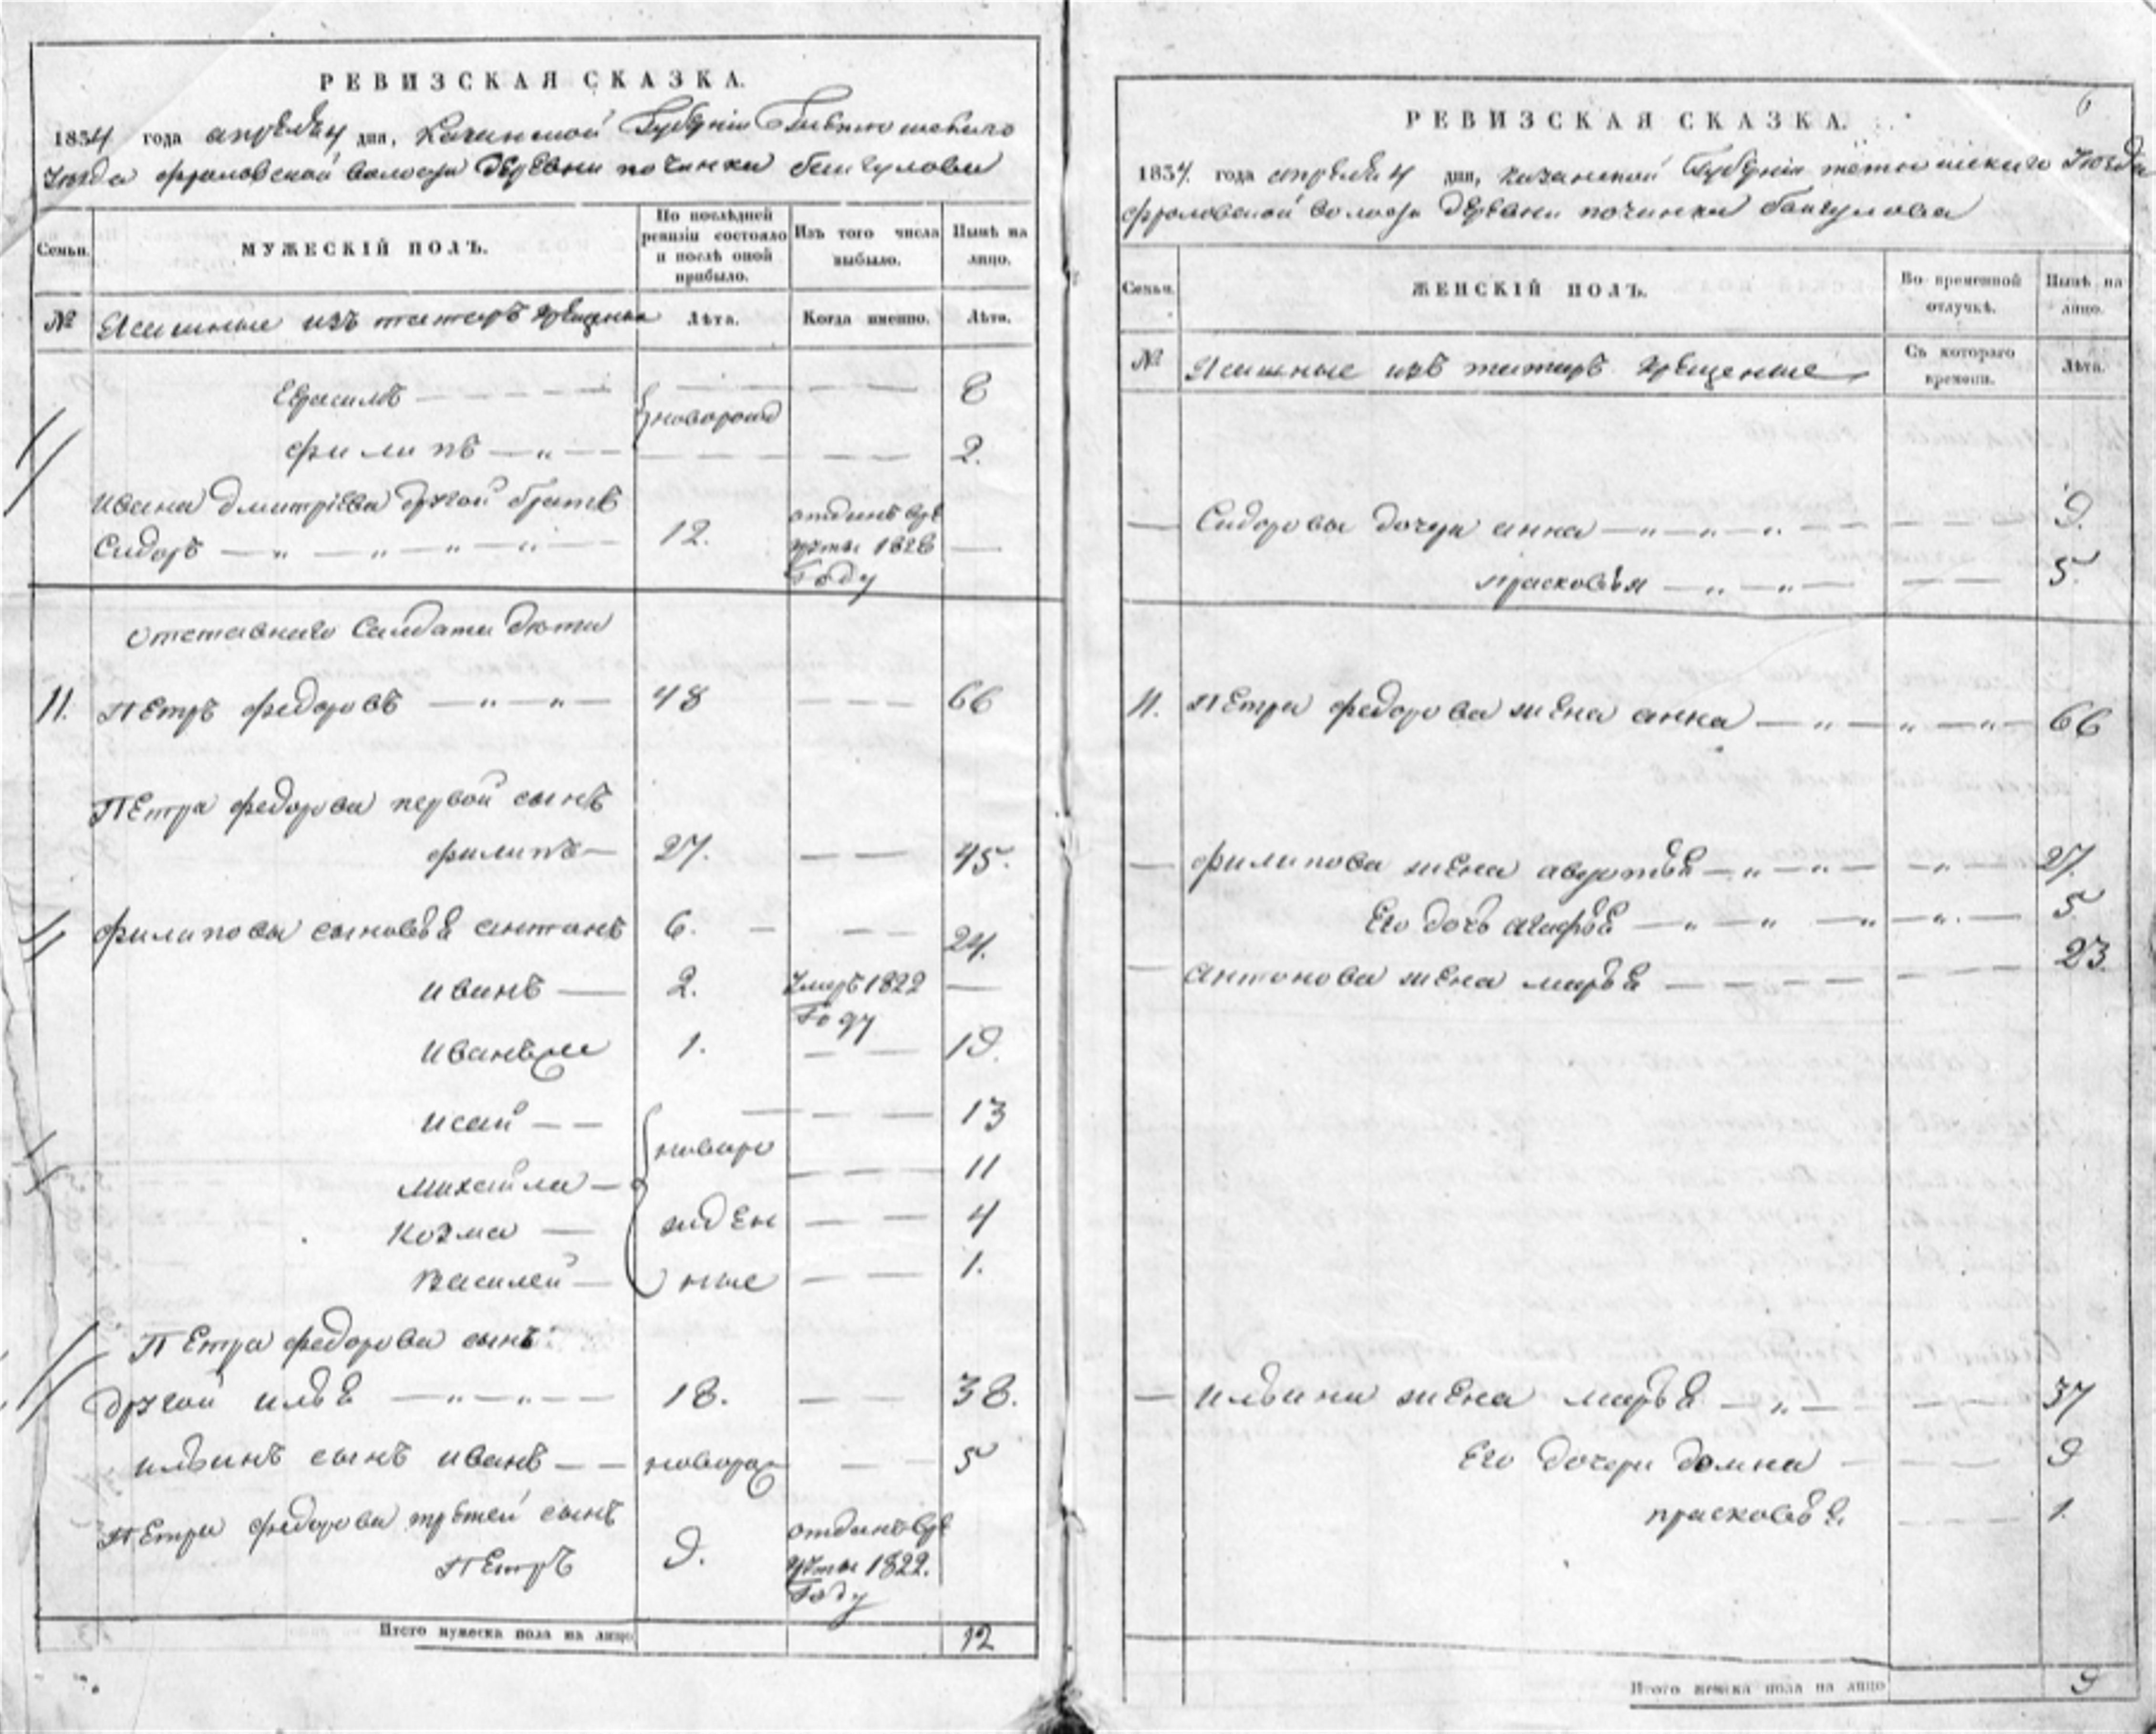 РЕВИЗСКАЯ СКАЗКА.
1834 года апреля 4 дня, Казанской Губернии Тетюшского
Уезда фроловской волости деревни починка бакгулова
Семьи.
МУЖЕСКІЙ ПОЛЪ.
По послѣдней ревизіи состояло и послѣ оной прибыло.
Изъ того числа выбыло.
Нынѣ на лицо.
№
Ясашные изъ татаръ крещеные
Лѣта.
Когда именно.
Лѣта.
новорожд
8
филипъ — „ — 2.
Ивана дмитріева другой братъ
Сидоръ — „ — „ — „ — „ — 12. отданъ в ре
круты 1828
Году
Отставнаго Салдата дѣти
11. Петръ федоровъ — „ — „ — 48 66
Петра федорова первой сынъ
филипъ — 27. 45.
филиповы сыновьѣ антонъ 6. 24.
иванъ — 2. Умеръ 1822
Году
1. 19.
исай — — новоро 13
михайла — 11
козма — жден 4
Василей — ные 1.
Петра федорова сынъ
другой ильѣ — „ — „ — 18. 38.
ильинъ сынъ иванъ — — новорож 5
Петра федорова третей сынъ
Петръ 9. отданъ в ре
круты 1822.
Году
Итого мужеска пола на лицо 12
6
РЕВИЗСКАЯ СКАЗКА.
1834. года апреля 4 дня, казанской Губерніи тетюшскаго Уезда
фроловской волости деревни починка бакгулова
Семьи.
ЖЕНСКІЙ ПОЛЪ.
Во временной отлучкѣ.
Нынѣ на лицо.
№
Ясашные изъ татаръ крещеные
Съ котораго времени.
Лѣта.
— Сидоровы дочери анна — „ — „ — „ — 9.
прасковья — „ — „ — 5
11. Петра федорова жена анна — „ — „ — „ — 66
— филипова жена авдотьѣ — „ — „ — „ — 27.
Его дочь агафьѣ — „ — „ — „ — „ — 5
— антонова жена марьѣ — 23.
— ильина жена марьѣ — „ — 37
Его дочери домна 9
прасковьѣ. 1.
Итого женска пола на лицо 9